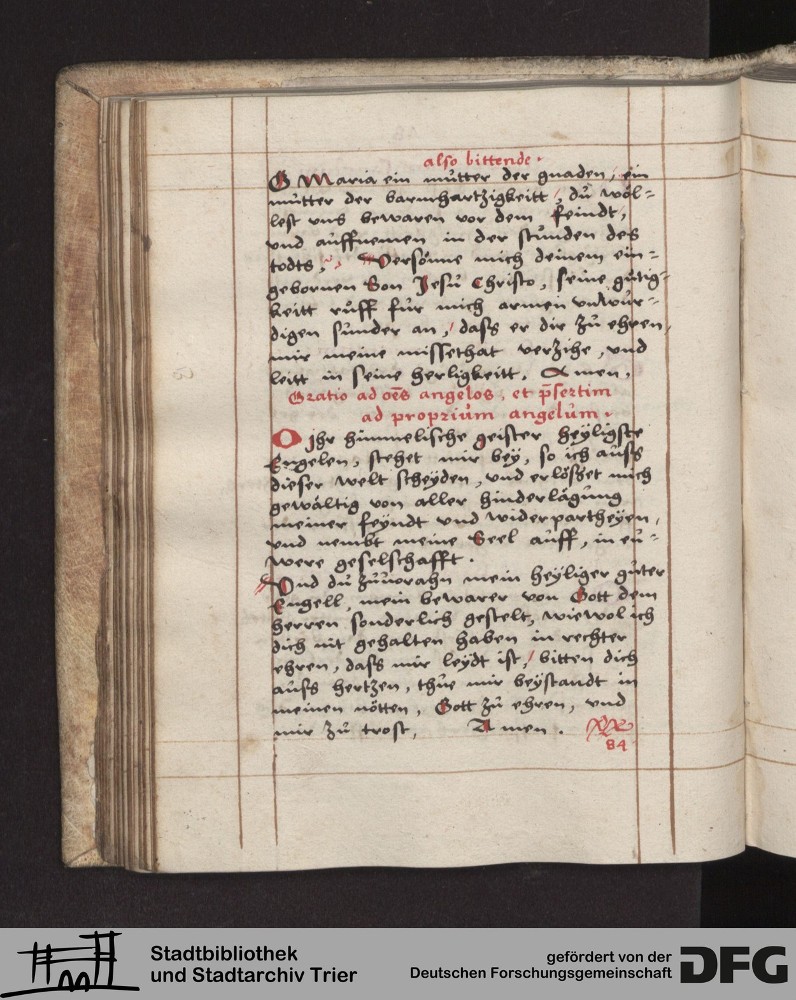 also bittende.
O Maria ein mutter der gnaden, ein
mutter der barmhartzigkeitt, du wöl=
lest uns bewaren vor dem feindt,
und auffnemen in der stunden des
todts, Versönne mich deinem ein=
gebornen Son Jesu Christo, seine gütig=
keitt ruff für mich armen unwür=
digen sunder an, dass er dir zu ehren,
mir meine missethat verzihe, und
leitt in seine herligkeitt, Amen.
Oratio ad oēs angelos, et p̄sertim
ad proprium angelum.
O Ihr himmelische geister heyligste
Engelen, stehet mir bey, so ich auss
dieser welt scheyden, und erlöszet mich
gewältig von aller hinderlägung
meiner feyndt und widerpartheyen,
und nembt meine Seel auff, in eu=
were geselschafft.
Und du zuuorahn mein heyliger guter
Engell, mein bewarer von Gott dem
herren sonderlich gestelt, wiewol ich
dich nit gehalten haben in rechter
ehren, dass mir leydt ist, bitten dich
auss hertzen, thue mir beystandt in
meinen nötten, Gott zu ehren, und
mir zu trost, Amen.
84
Stadtbibliothek
und Stadtarchiv Trier
gefördert von der
Deutschen Forschungsgemeinschaft
DFG